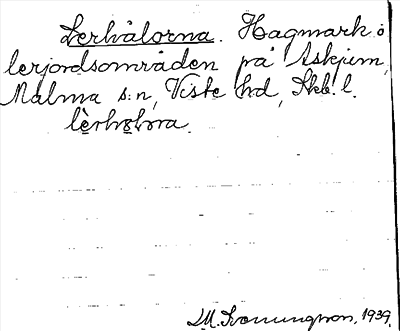 Lerhålorna. Hagmark o
lerjordsområden på Askjum,
Malma s:n, Viste hd, Skb. l.
1939.